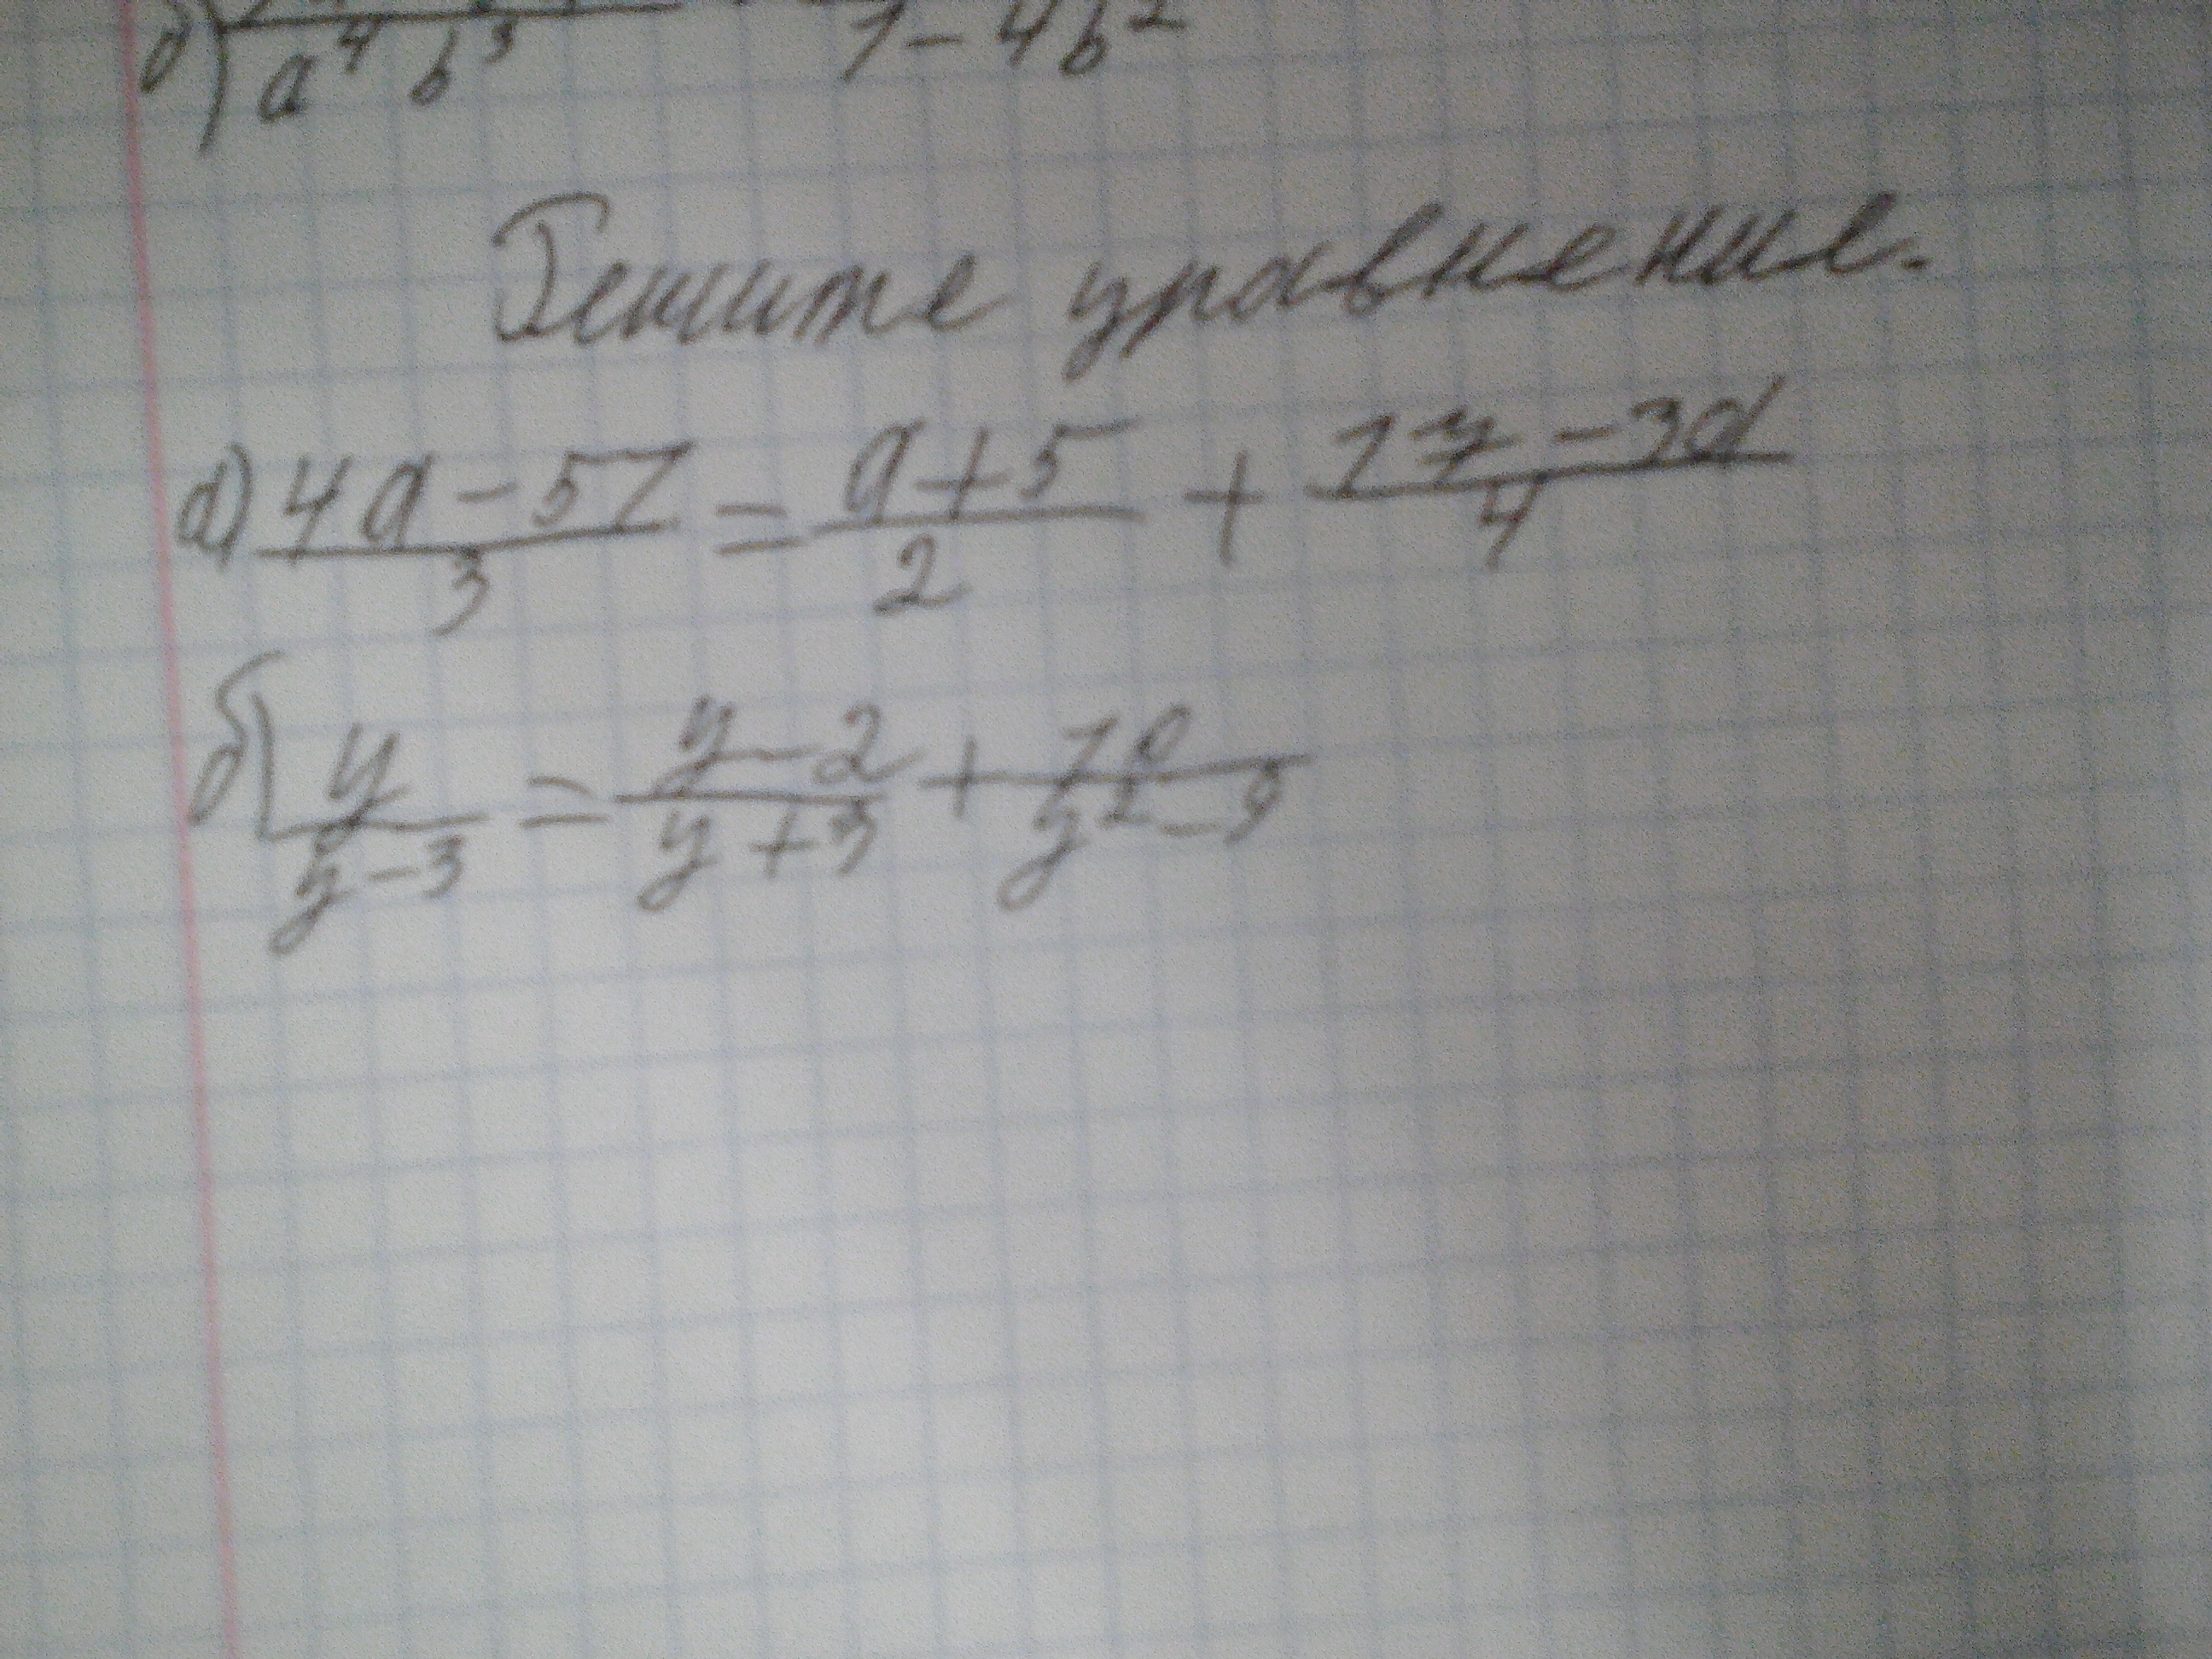 б) a⁴ b³ 1 - 4b²
Решите уравнение.
а) (4a - 51)/3 = (a + 5)/2 + (17 - 3a)/4
б) y/(y - 3) = (y - 2)/(y + 3) + 10/(y² - 9)